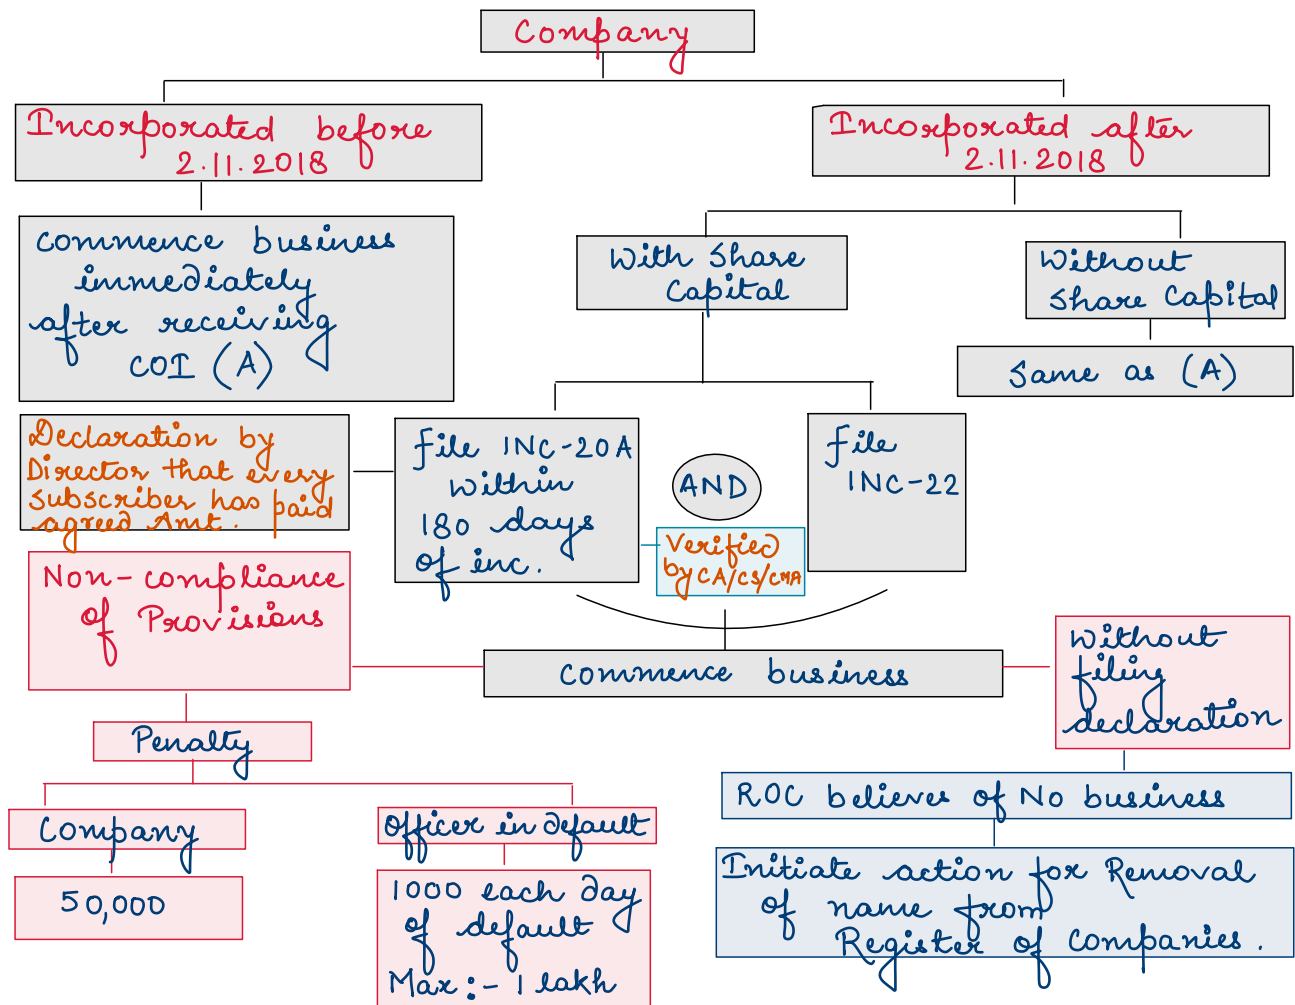 Company
Incorporated before
2.11.2018
Incorporated after
2.11.2018
Commence business
immediately
after receiving
COI (A)
With Share
Capital
Without
Share Capital
Same as (A)
Declaration by
Director that every
Subscriber has paid
agreed Amt.
File INC-20A
Within
180 days
of inc.
AND
File
INC-22
Verified
by CA/CS/CMA
Non-compliance
of Provisions
Commence business
Without
filing
declaration
Penalty
Company
50,000
Officer in default
1000 each day
of default
Max:- 1 lakh
ROC believes of No business
Initiate action for Removal
of name from
Register of Companies.